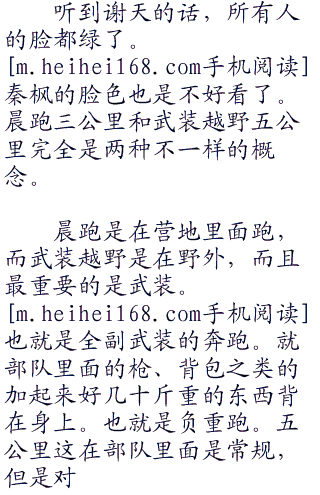 听到谢天的话，所有人
的脸都绿了。
[m.heihei168.com手机阅读]
秦枫的脸色也是不好看了。
晨跑三公里和武装越野五公
里完全是两种不一样的概
念。
晨跑是在营地里面跑，
而武装越野是在野外，而且
最重要的是武装。
[m.heihei168.com手机阅读]
也就是全副武装的奔跑。就
部队里面的枪、背包之类的
加起来好几十斤重的东西背
在身上。也就是负重跑。五
公里这在部队里面是常规，
但是对